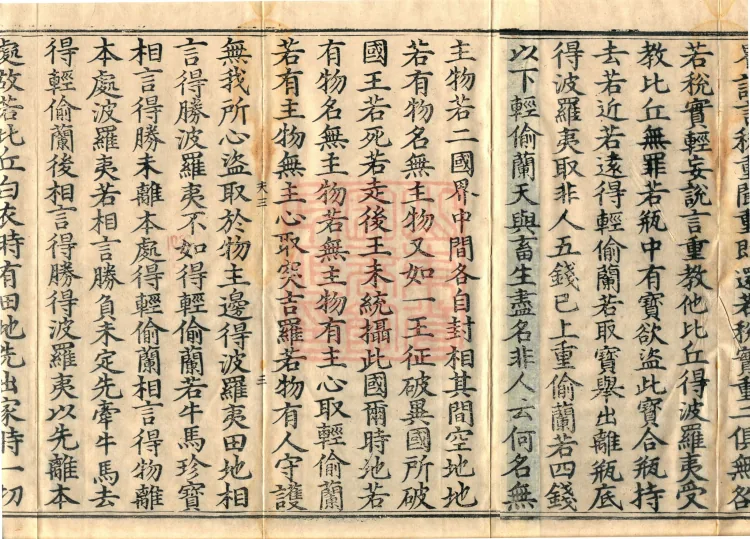 稅重重即若稅實重二俱無咎
若稅實輕妄說言重教他比丘得波羅夷受
教比丘無罪若瓶中有寶欲盜此寶合瓶持
去若近若遠得輕偷蘭若取寶舉出離瓶底
得波羅夷取非人五錢已上重偷蘭若四錢
以下輕偷蘭天與畜生盡名非人云何名無
主物若二國界中間各自封相其間空地地
若有物名無主物又如一王征破異國所破
國王若死若走後王未統攝此國爾時地若
有物名無主物若無主物有主心取輕偷蘭
若有主物無主心取突吉羅若物有人守護
三 三
無我所心盜取於物主邊得波羅夷田地相
言得勝波羅夷不如得輕偷蘭若牛馬珍寶
相言得勝未離本處得輕偷蘭相言得物離
本處波羅夷若相言勝負未定先牽牛馬去
得輕偷蘭後相言得勝得波羅夷以先離本
處故若比丘白衣時有田地先出家時一切